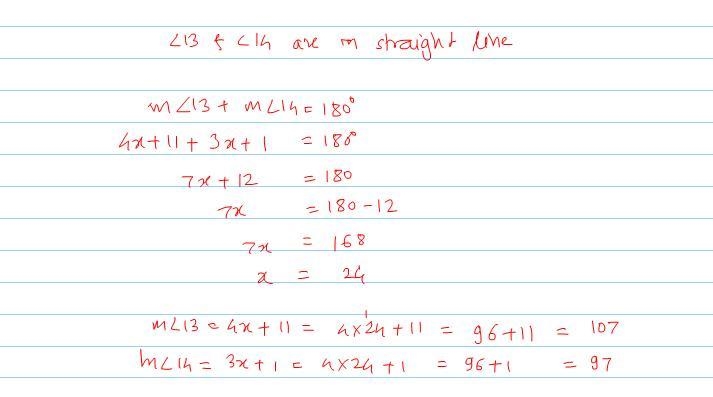 ∠13 & ∠14 are in straight line
m∠13 + m∠14 = 180°
4x+11 + 3x+1 = 180°
7x + 12 = 180
7x = 180 - 12
7x = 168
x = 24
m∠13 = 4x + 11 = 4×24 + 11 = 96 + 11 = 107
m∠14 = 3x + 1 = 4×24 + 1 = 96 + 1 = 97